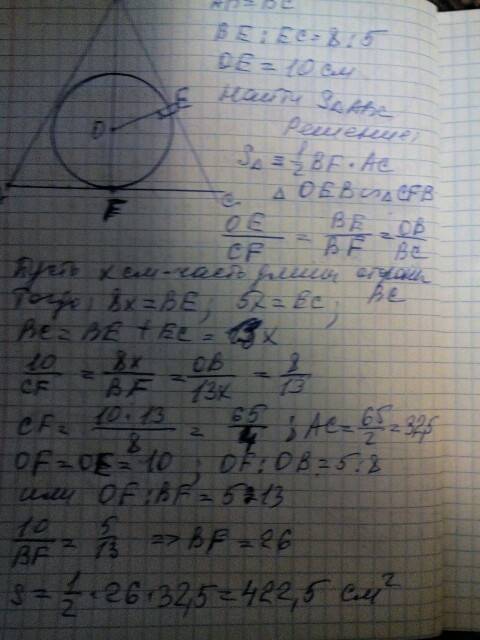 AB = BC
BE : EC = 8 : 5
OE = 10 см
Найти S△ABC
Решение:
S△ = 1/2 BF · AC
△ OEB ∾ △ CFB
OE/CF = BE/BF = OB/BC
Пусть x см - часть длины стороны BC
Тогда; 8x = BE; 5x = EC;
BC = BE + EC = 13x
10/CF = 8x/BF = OB/13x = 8/13
CF = 10·13/8 = 65/4; AC = 65/2 = 32,5
OF = OE = 10; OF : OB = 5 : 8
или OF : BF = 5 : 13
10/BF = 5/13 => BF = 26
S = 1/2 · 26 · 32,5 = 422,5 см²
E
O
F
C